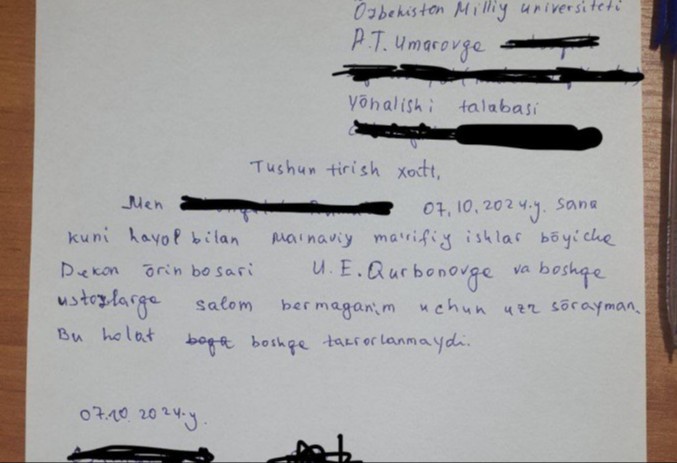 Ōzbekiston Milliy universiteti
A.T. Umarovga
yōnalishi talabasi
Tushun tirish xati,
Men 07.10.2024.y. sana
kuni hayol bilan Ma'naviy ma'rifiy ishlar bōyicha
Dekan ōrinbosari U.E.Qurbonovga va boshqa
ustozlarga salom bermaganim uchun uzr sōrayman.
Bu holat boshqa takrorlanmaydi.
07.10.2024.y.